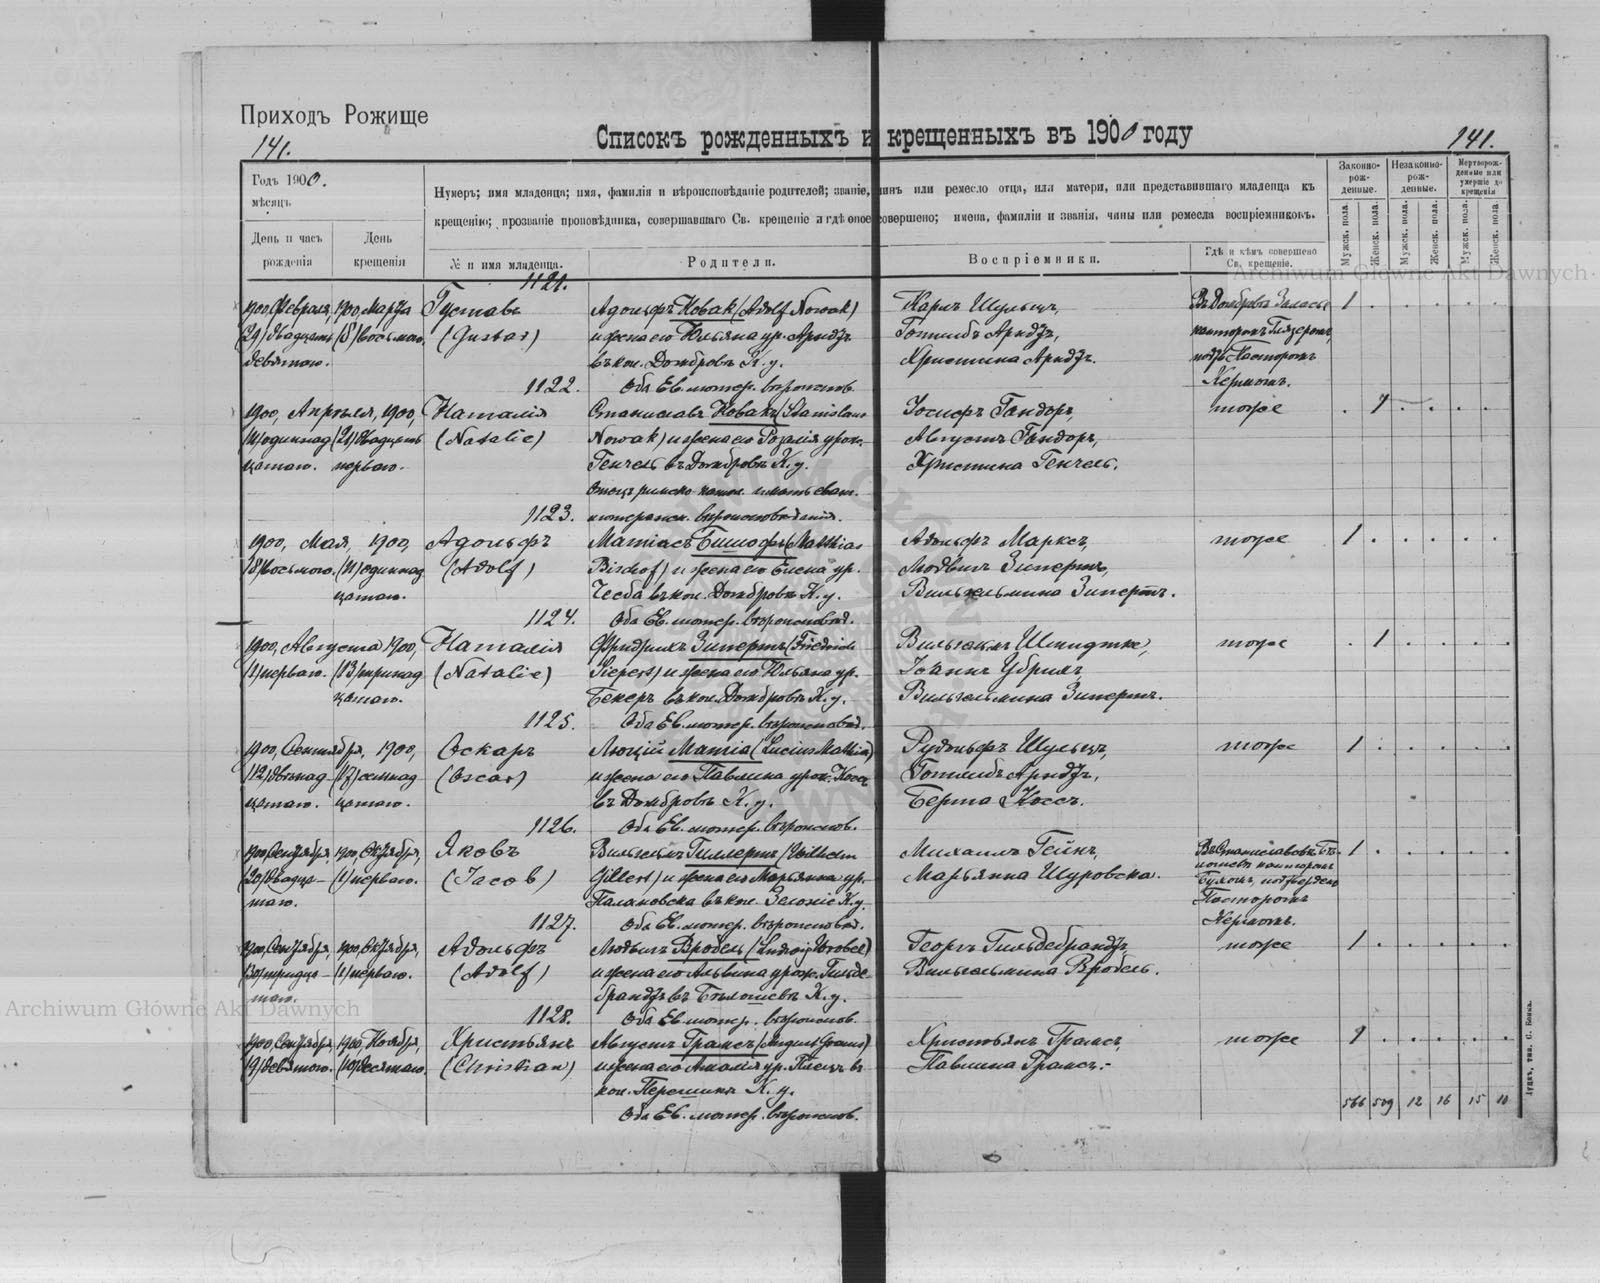 Приходъ Рожище
141.
Списокъ рожденныхъ и крещенныхъ въ 1900 году
141.
Годъ 1900.
мѣсяцъ
День и часъ рожденія
День крещенія
Нумеръ; имя младенца; имя, фамилія и вѣроисповѣданіе родителей; званіе, чинъ или ремесло отца, или матери, или представившаго младенца къ
крещенію; прозваніе проповѣдника, совершавшаго Св. крещеніе и гдѣ оное совершено; имена, фамиліи и званія, чины или ремесла воспріемниковъ.
№ и имя младенца.
Родители.
Воспріемники.
Гдѣ и кѣмъ совершено Св. крещеніе.
Законно-рож-денные.
Незаконно-рож-денные.
Мертворож-денные или умершіе до крещенія
Мужск. пола.
Женск. пола.
Мужск. пола.
Женск. пола.
Мужск. пола.
Женск. пола.
Archiwum Główne Akt Dawnych
1121.
1900, Февраля, 1900, Марта Густавъ Адольфъ Новак (Adolf Nowak) Карлъ Шульцъ, 1
(29) двадцать (8) восьмого. (Gustav) и жена его Юльяна ур. Арндъ Готлибъ Арндъ, канторомъ Глязеромъ,
девятаго. въ кол. Домбровъ К. у. Христина Арндъ. Пасторомъ
1122. Оба Ев. лютер. вѣроиспов. Кермомъ.
1900, Апрѣля, 1900, Наталія Станиславъ Новакъ (Stanislaus Іосифъ Гандоръ, тоже 1
(11) одиннад (21) двадцать (Natalie) Nowak) и жена его Розалія урож. Августъ Гандоръ,
цатаго. перваго. Генчель въ Домбровѣ К. у. Христина Генчель.
Отецъ римско-катол. и мать еванг.
1123. лютеранск. вѣроисповѣданія.
1900, Мая, 1900, Адольфъ Матіасъ Бишофъ (Mathias Адольфъ Марксъ, тоже 1
(8) восьмого. (11) одиннад (Adolf) Bischof) и жена его Елена ур. Людвигъ Зипертъ,
цатаго. въ кол. Домбровѣ К. у. Вильгельмина Зипертъ.
1124. Оба Ев. лютер. вѣроисповѣд.
1900, Августа 1900, Наталія Фридрихъ Зипертъ (Friedrich Вильгельмъ Шмидтке, тоже 1
(1) перваго. (13) тринад (Natalie) Siepert) и жена его Юльяна ур. Іоганъ Убрихъ,
цатаго. Бекеръ въ кол. Домбровѣ К. у. Вильгельмина Зипертъ.
1125. Оба Ев. лютер. вѣроисповѣд.
1900, Сентября, 1900, Оскаръ Люцій Матіа (Lucius Mathia) Рудольфъ Шульцъ, тоже 1
(12) двѣнад (17) семнад (Oscar) и жена его Павлина урож. Коссъ Готлибъ Арндъ,
цатаго. цатаго. въ Домбровѣ К. у. Берта Коссъ.
1126. Оба Ев. лютер. вѣроиспов.
1900, Сентября, 1900, Октября, Яковъ Вильгельмъ Гиллертъ (Wilhelm Михаилъ Гейнъ, 1
(20) двадца- (1) перваго. (Jacob) Gillert) и жена его Марьянна ур. Марьянна Щуровска.
таго. Палановска въ кол. К. у. Пасторомъ
1127. Оба Ев. лютер. вѣроисповѣд. Кермомъ.
1900, Сентября, 1900, Октября, Адольфъ Людвигъ Вробель (Ludwig Wrobel) Георгъ Гильдебрандъ, тоже 1
(30) тридца- (1) перваго. (Adolf) и жена его Альвина урож. Гильде- Вильгельмина Вробель.
таго. брандъ въ К. у.
1128. Оба Ев. лютер. вѣроиспов.
1900, Сентября, 1900, Ноября, Христьянъ Августъ Грамсъ (August Grams) Христьянъ Грамсъ, тоже 1
(9) девятаго. (10) десятаго. (Christian) и жена его Амалія ур. въ Павлина Грамсъ.
кол. К. у.
Оба Ев. лютер. вѣроиспов.
566 509 12 16 15 10
Archiwum Główne Akt Dawnych
Луцкъ, тип. С. Бонка.